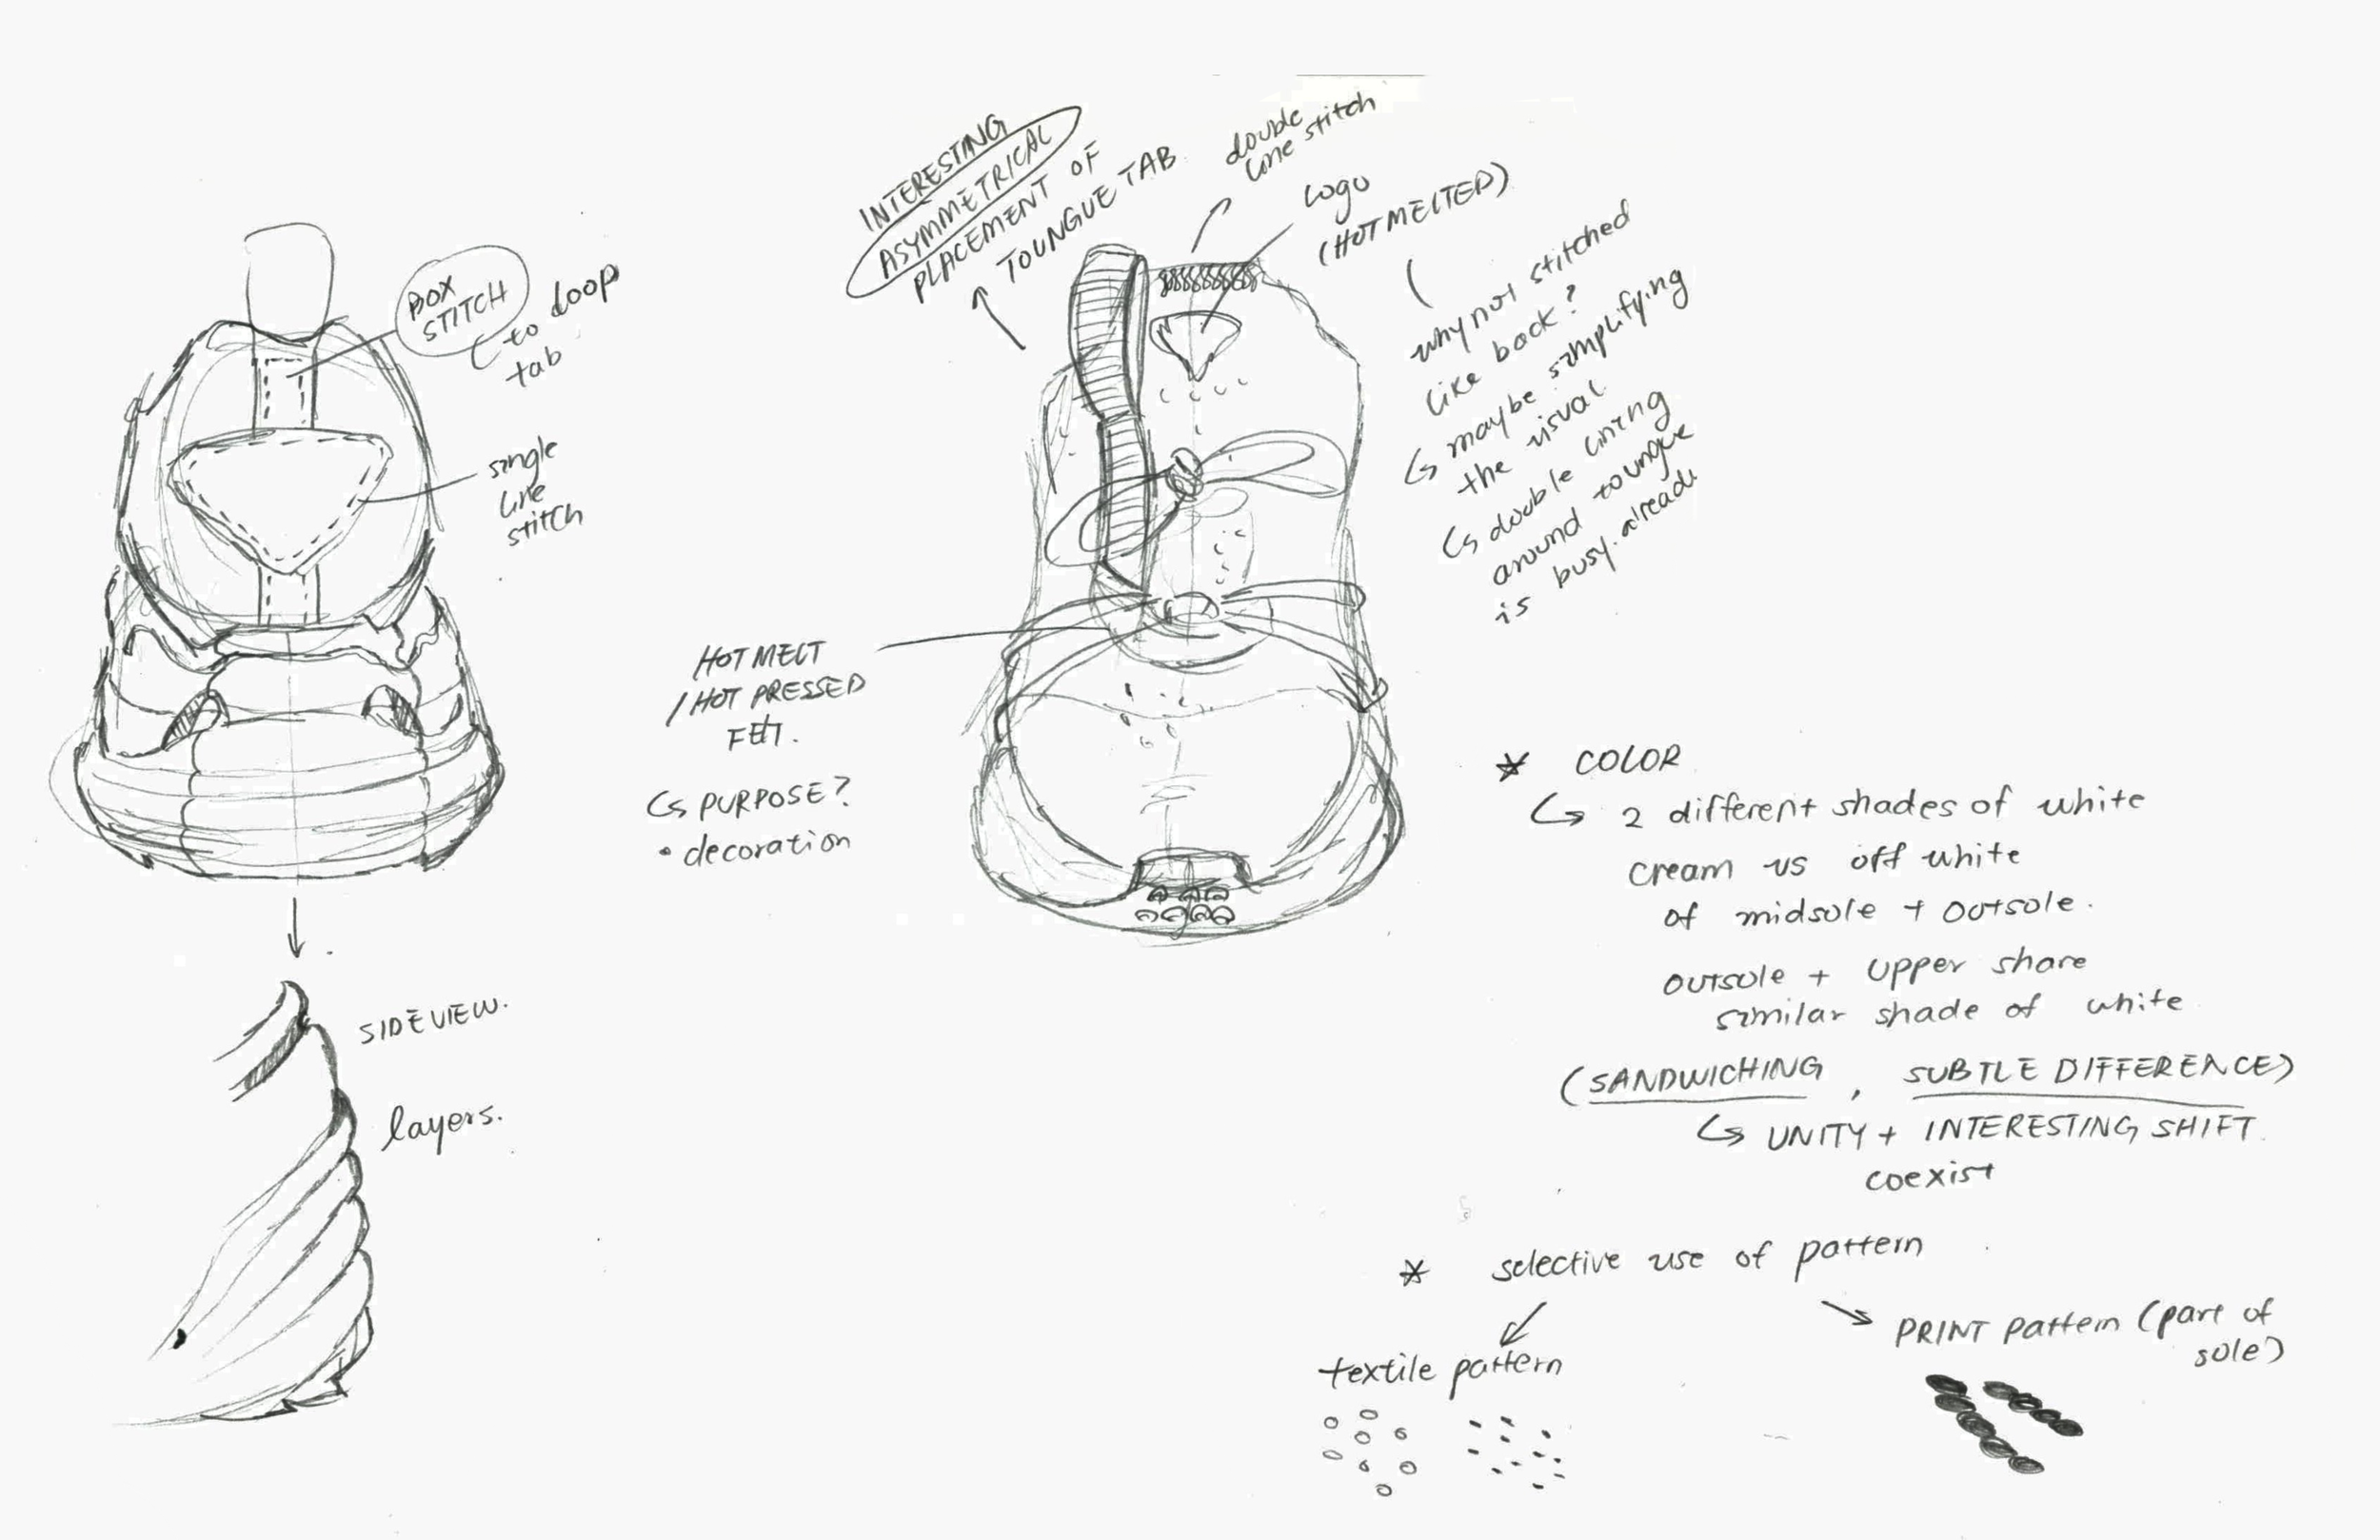 BOX
STITCH
to loop
tab
single
line
stitch
SIDEVIEW.
layers.
INTERESTING
ASYMMETRICAL
PLACEMENT OF
TOUNGUE TAB
double
line stitch
logo
(HOT MELTED)
why not stitched
like back?
maybe simplifying
the visual
double lining
around toungue
is busy already
HOT MELT
/ HOT PRESSED
PURPOSE?
• decoration
* COLOR
2 different shades of white
cream vs off white
of midsole + outsole.
outsole + upper share
similar shade of white
(SANDWICHING, SUBTLE DIFFERENCE)
UNITY + INTERESTING SHIFT.
coexist
* selective use of pattern
textile pattern
PRINT pattern (part of
sole)